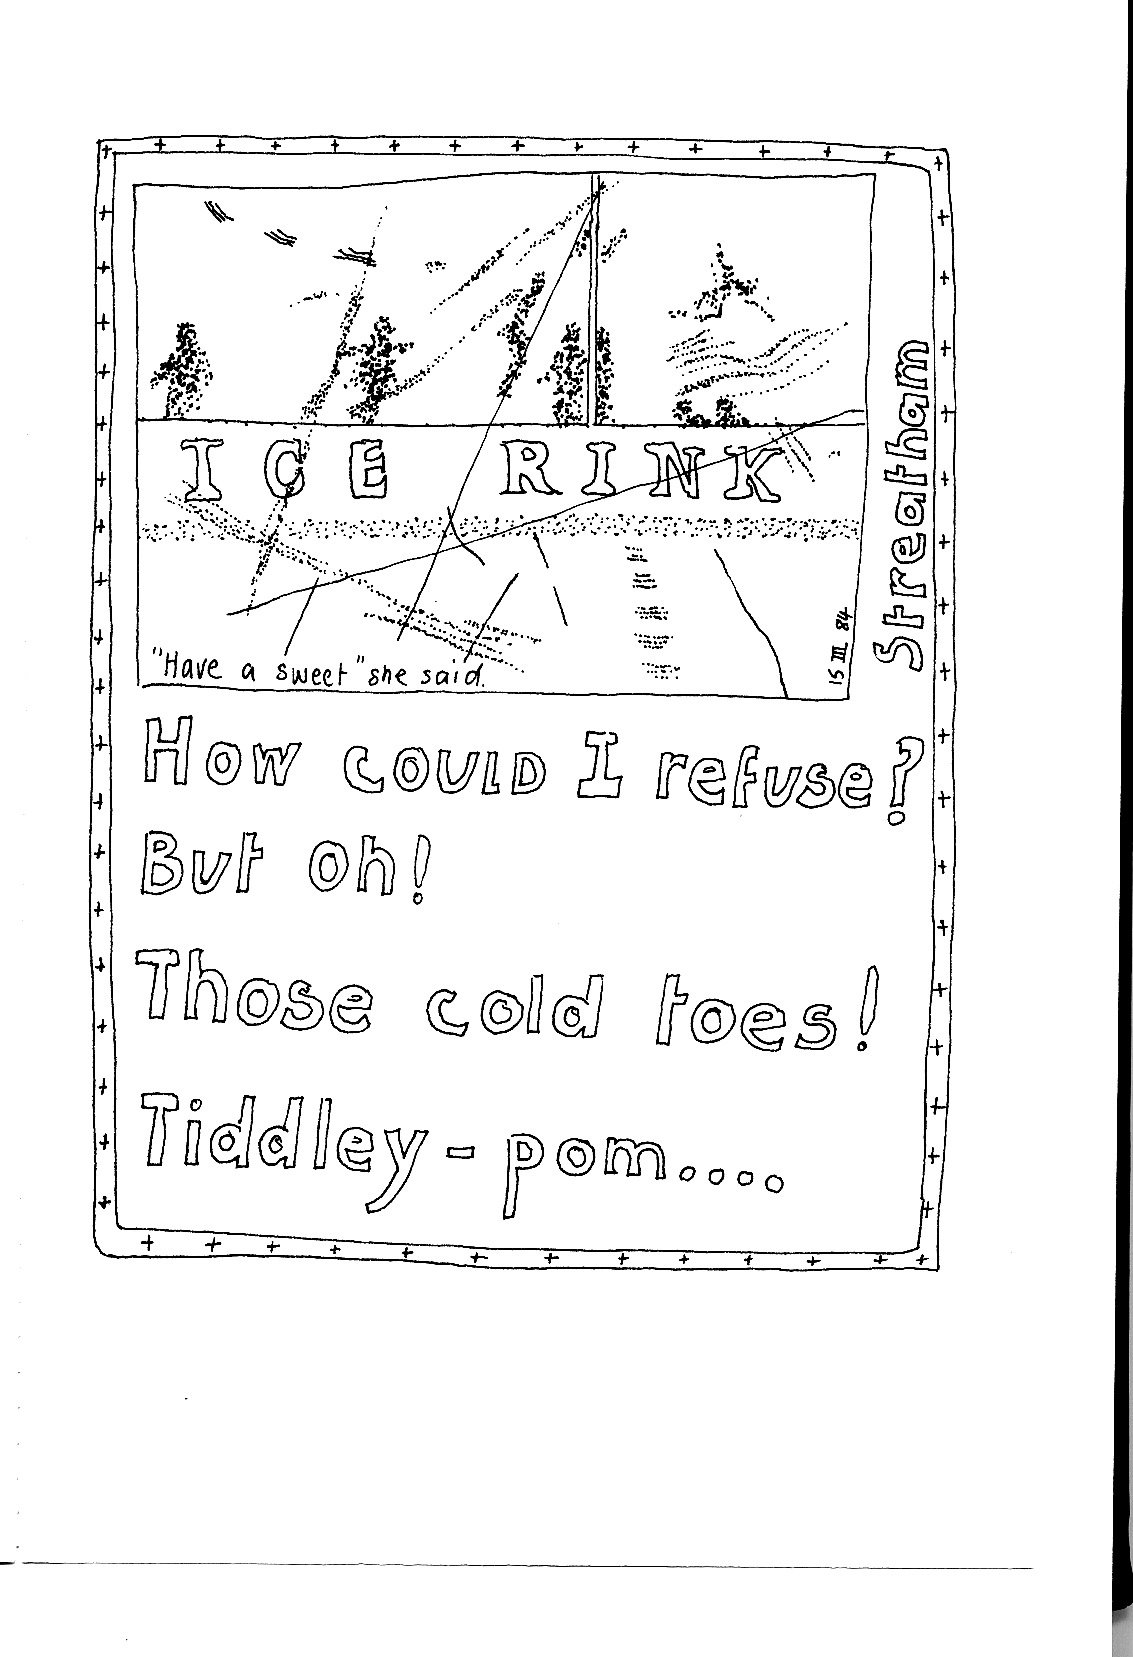 ICE RINK
"Have a sweet" she said.
15 III 84
Streatham
How could I refuse?
But oh!
Those cold toes!
Tiddley-pom....